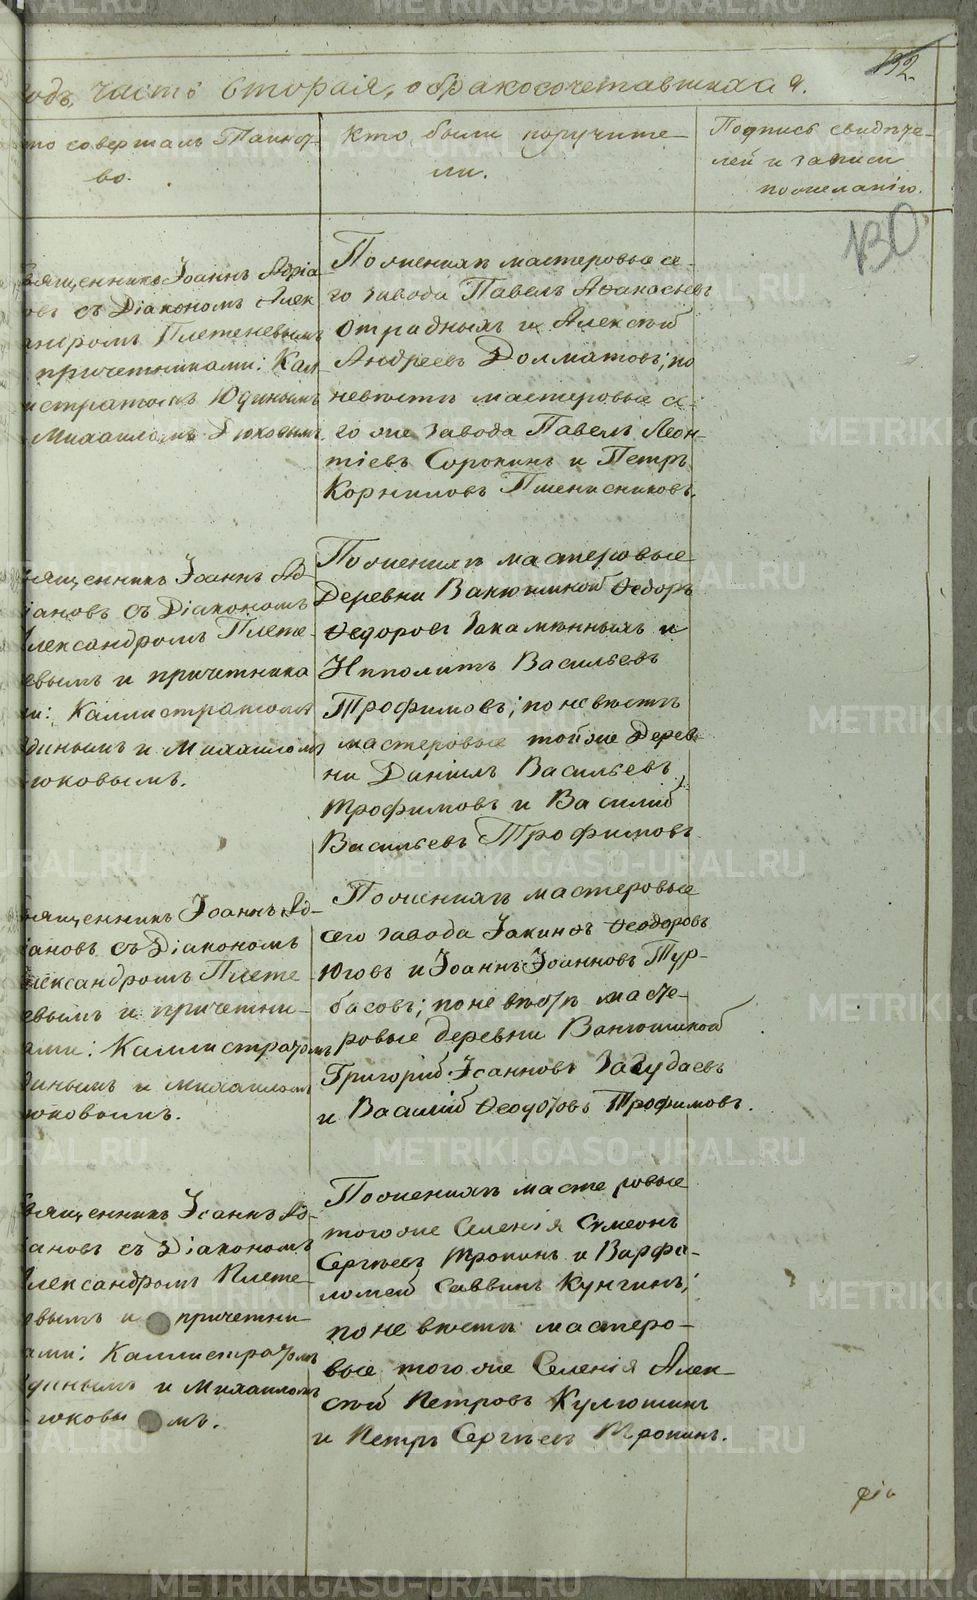 132
одъ, часть вторая, о бракосочетавшихся.
то совершалъ Таинст-
во.
Кто были поручите-
ли.
Подпись свидѣте-
лей и записи
по желанію.
130
вященникъ Іоаннъ Адріа
овъ съ Діакономъ Алек
андромъ Плетеневымъ
причетниками: Кал-
истратомъ Юдинымъ
Михаиломъ Дюковымъ.
По женихѣ мастеровые се-
го завода Павелъ Аѳанасьевъ
Отрадныхъ и Алексѣй
Андреевъ Долматовъ; по
невѣстѣ мастеровые се-
го же завода Павелъ Леон-
тіевъ Сорокинъ и Петръ
Корниловъ Пшенисниковъ.
вященникъ Іоаннъ Ад-
іановъ съ Діакономъ
Александромъ Плете-
евымъ и причетника
ми: Каллистратомъ
динымъ и Михаиломъ
юковымъ.
По женихѣ мастеровые
Деревни Ванюшиной Ѳедоръ
Ѳедоровъ Закаменныхъ и
Ипполитъ Васильевъ
Трофимовъ; по невѣстѣ
мастеровые той же Дерев-
ни Даніилъ Васильевъ
Трофимовъ и Василій
Васильевъ Трофимовъ.
вященникъ Іоаннъ Ад-
іановъ съ Діакономъ
лександромъ Плете-
евымъ и причетни-
ами: Каллистратомъ
динымъ и Михаиломъ
юковымъ.
По женихѣ мастеровые
сего завода Іакинѳъ Ѳеодоровъ
Юговъ и Іоаннъ Іоанновъ Тур-
басовъ; по невѣстѣ масте-
ровые деревни Ванюшиной
Григорій Іоанновъ Загудаевъ
и Василій Ѳедотовъ Трофимовъ.
вященникъ Іоаннъ Ад-
іановъ съ Діакономъ
Александромъ Плете-
овымъ и причетни-
ами: Каллистратомъ
динымъ и Михаиломъ
юковымъ.
По женихѣ мастеровые
того же Селенія Симеонъ
Сергѣевъ Тропинъ и Варфо-
ломей Саввинъ Кунгинъ;
по невѣстѣ мастеро-
вые того же Селенія Алек-
сѣй Петровъ Кулюшинъ
и Петръ Сергѣевъ Тропинъ.
METRIKI.GASO-URAL.RU